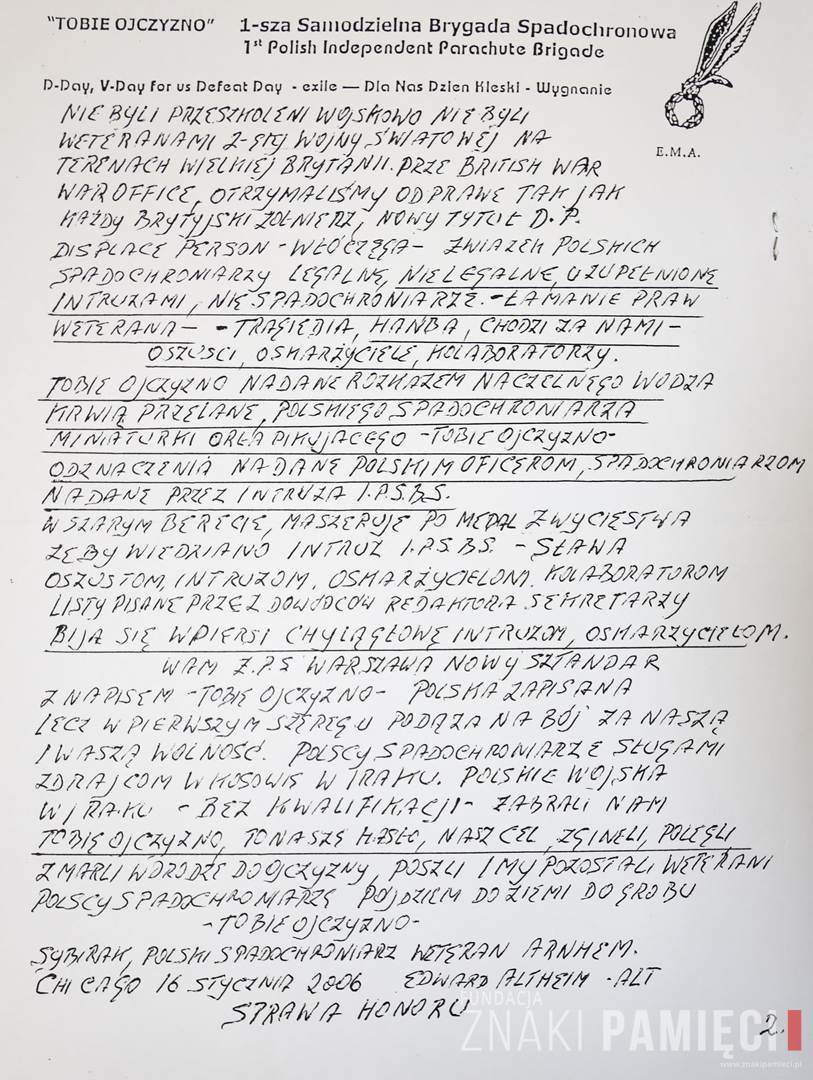 "TOBIE OJCZYZNO" 1-sza Samodzielna Brygada Spadochronowa
1st Polish Independent Parachute Brigade
D-Day, V-Day for us Defeat Day - exile — Dla Nas Dzien Kleski - Wygnanie
E.M.A.
NIE BYLI PRZESZKOLENI WOJSKOWO NIE BYLI
WETERANAMI 2-GIEJ WOJNY ŚWIATOWEJ NA
TERENACH WIELKIEJ BRYTANII. PRZE BRITISH WAR
WAR OFFICE, OTRZYMALIŚMY ODPRAWE TAK JAK
KAŻDY BRYTYJSKI ŻOŁNIERZ, NOWY TYTUŁ D.P.
DISPLACE PERSON - WŁÓCZĘGA - ZWIAZEK POLSKICH
SPADOCHRONIARZY LEGALNE, NIELEGALNE, UZUPEŁNIONE
INTRUZAMI, NIE SPADOCHRONIARZE. - ŁAMANIE PRAW
WETERANA - - TRAGIEDIA, HAŃBA, CHODZI ZA NAMI -
OSZUŚCI, OSKARŻYCIELE, KOLABORATORZY.
TOBIE OJCZYZNO NADANE ROZKAZEM NACZELNEGO WODZA
KRWIĄ PRZELANE, POLSKIEGO SPADOCHRONIARZA
MINIATURKI ORŁA PIKUJACEGO - TOBIE OJCZYZNO -
ODZNACZENIA NADANE POLSKIM OFICEROM, SPADOCHRONIARZOM
NADANE PRZEZ INTRUZA I.P.S.B.S.
W SZARYM BERECIE, MASZERUJE PO MEDAL ZWYCIĘSTWA
ŻEBY WIEDZIANO INTRUZ I.P.S.B.S. - SŁAWA
OSZUSTOM, INTRUZOM, OSKARŻYCIELOM. KOLABORATOROM
LISTY PISANE PRZEZ DOWÓDCÓW REDAKTORA SEKRETARZY
BIJĄ SIĘ W PIERSI CHYLĄ GŁOWE INTRUZOM, OSKARZYCIEŁOM.
WAM Z.P.S WARSZAWA NOWY SZTANDAR
Z NAPISEM - TOBIE OJCZYZNO - POLSKA ZAPISANA
LECZ W PIERWSZYM SZEREGU PODĄŻA NA BÓJ ZA NASZĄ
I WASZĄ WOLNOŚĆ. POLSCY SPADOCHRONIARZE SŁUGAMI
ZDRAJCOM W KOSOWIE W IRAKU. POLSKIE WOJSKA
W IRAKU - BEZ KWALIFIKACJI - ZABRALI NAM
TOBIE OJCZYZNO, TO NASZE HASŁO, NASZ CEL, ZGINELI, POLEGLI
ZMARLI W DRODZE DO OJCZYZNY, POSZLI I MY POZOSTALI WETERANI
POLSCY SPADOCHRONIARZE PÓJDZIEM DO ZIEMI DO GROBU
- TOBIE OJCZYZNO -
SYBIRAK, POLSKI SPADOCHRONIARZ WETERAN ARNHEM.
CHICAGO 16 STYCZNIA 2006 EDWARD ALTHEIM - ALT
SPRAWA HONORU
2.
FUNDACJA
ZNAKI PAMIĘCI
www.znakipamieci.pl